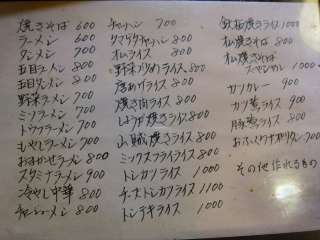 焼きそば 600
ラーメン 600
タンメン 700
五目ラーメン 800
五目タンメン 800
野菜ラーメン 700
ミソラーメン 700
トウフラーメン 700
もやしラーメン 700
おまかせラーメン 800
スタミナラーメン 900
冷やし中華 800
チャーシューメン 800
チャーハン 700
800
オムライス 800
野菜いためライス 800
唐あげライス 800
焼き肉ライス 800
しょうが焼きライス 800
山賊焼きライス 800
ミックスフライライス 800
トンカツライス 1000
チーズトンカツライス 1100
トンテキライス 1000
鉄板焼きライス 1000
焼きそば 800
焼きそば
スペシャル 1000
カツカレー 900
カツ丼ライス 900
豚丼ライス 800
ナポリタン 700
その他 作れるもの